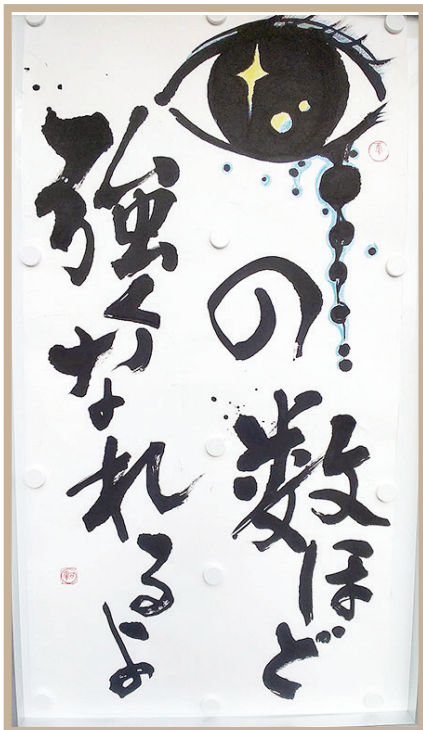 の数ほど
強くなれるよ